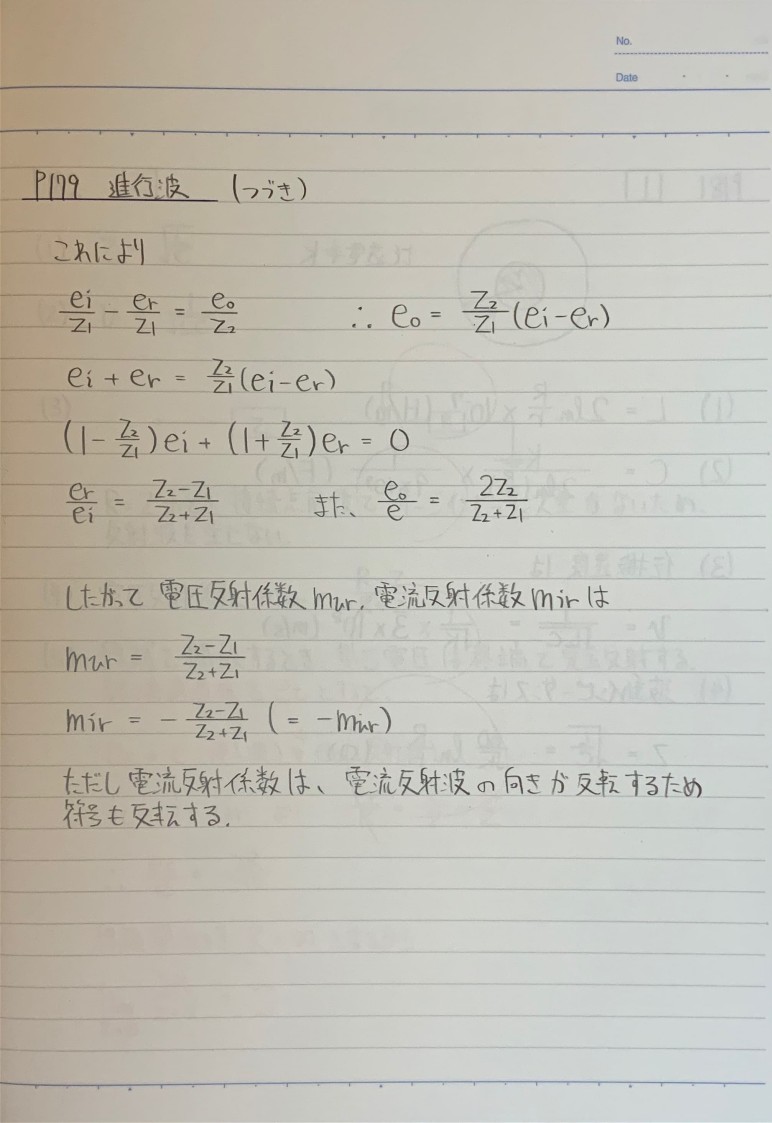 No.
Date
P179 進行波 (つづき)
これにより
ei/Z1 - er/Z1 = eo/Z2 ∴ eo = Z2/Z1 (ei-er)
ei + er = Z2/Z1 (ei-er)
(1 - Z2/Z1) ei + (1 + Z2/Z1) er = 0
er/ei = Z2-Z1/Z2+Z1 また、eo/e = 2Z2/Z2+Z1
したがって 電圧反射係数 mur, 電流反射係数 mir は
mur = Z2-Z1/Z2+Z1
mir = - Z2-Z1/Z2+Z1 (= -mur)
ただし電流反射係数は、電流反射波の向きが反転するため
符号も反転する.